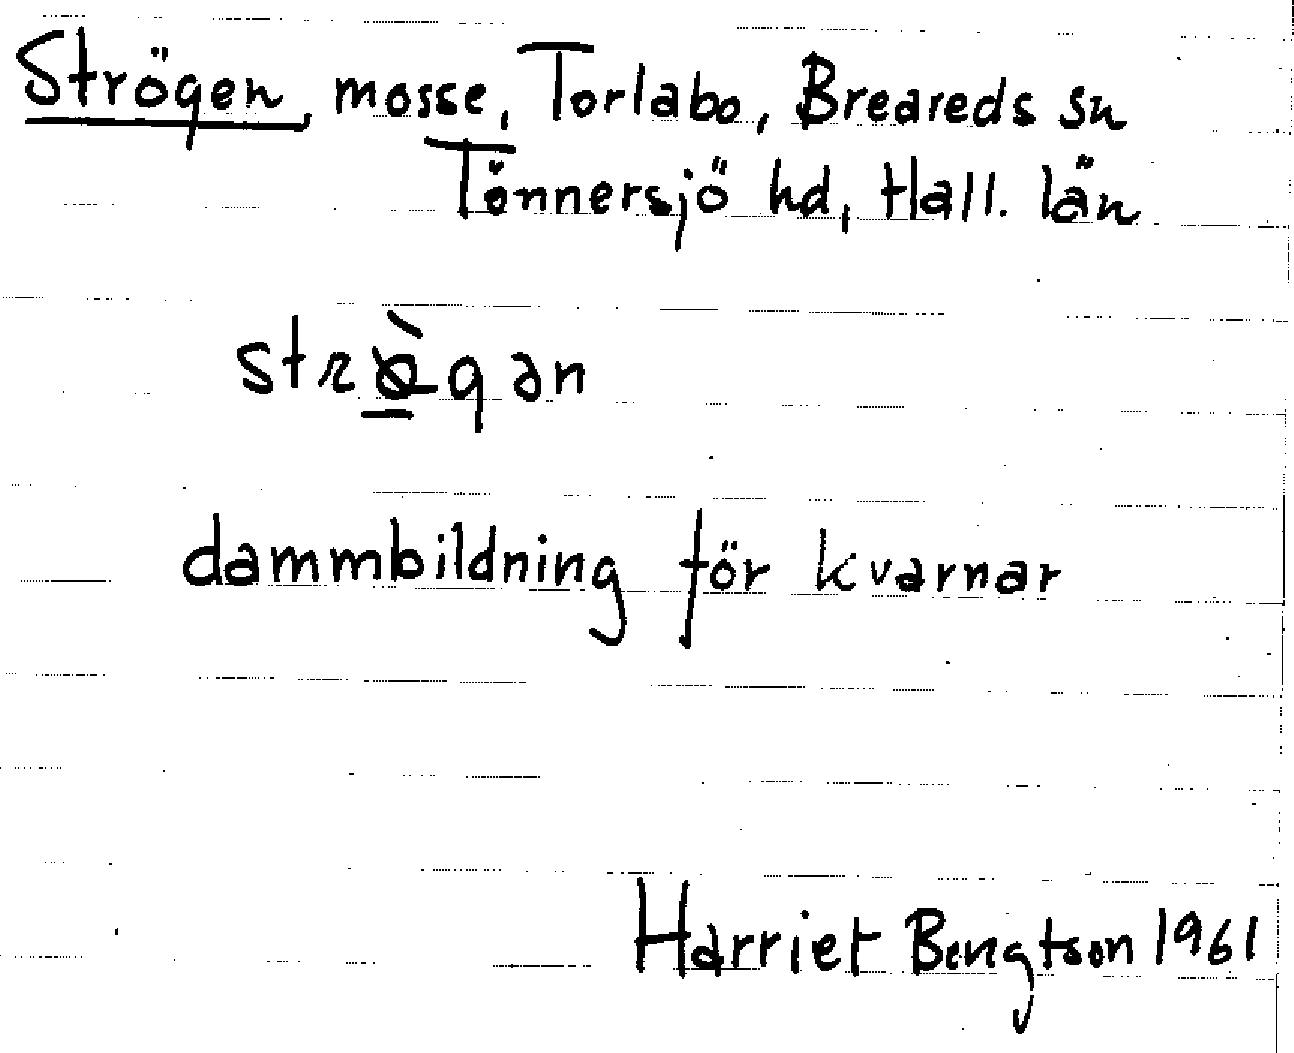 Strögen, mosse, Torlabo, Breareds sn
Tönnersjö hd, Hall. län
dammbildning för kvarnar
Harriet Bengtson 1961